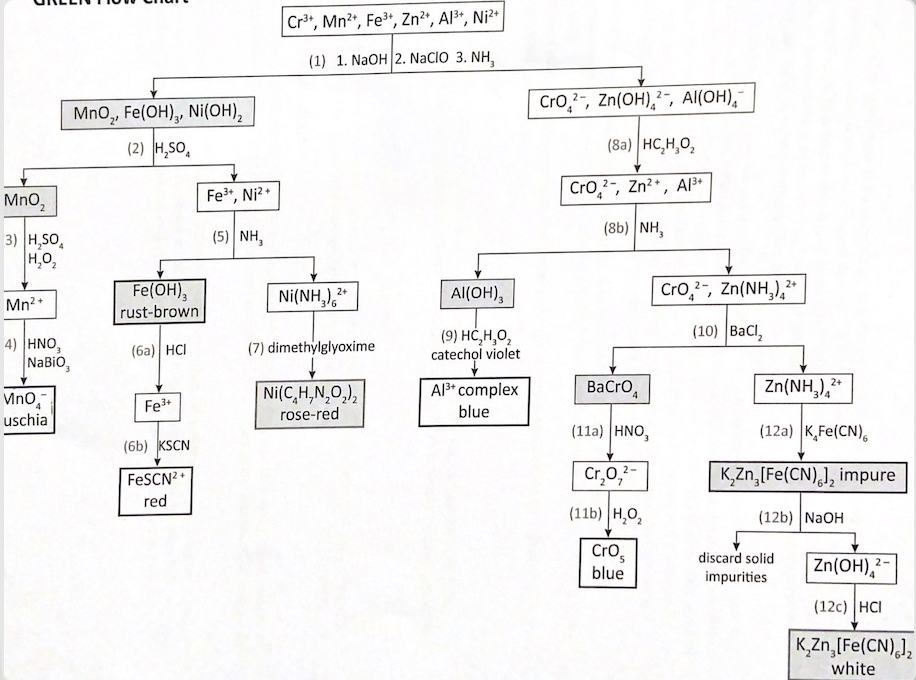 GREEN Flow Chart
Cr³⁺, Mn²⁺, Fe³⁺, Zn²⁺, Al³⁺, Ni²⁺
(1) 1. NaOH 2. NaClO 3. NH₃
MnO₂, Fe(OH)₃, Ni(OH)₂
CrO₄²⁻, Zn(OH)₄²⁻, Al(OH)₄⁻
(2) H₂SO₄
(8a) HC₂H₃O₂
MnO₂
Fe³⁺, Ni²⁺
CrO₄²⁻, Zn²⁺, Al³⁺
3) H₂SO₄
H₂O₂
(5) NH₃
(8b) NH₃
Mn²⁺
Fe(OH)₃
rust-brown
Ni(NH₃)₆²⁺
Al(OH)₃
CrO₄²⁻, Zn(NH₃)₄²⁺
4) HNO₃
NaBiO₃
(6a) HCl
(7) dimethylglyoxime
(9) HC₂H₃O₂
catechol violet
(10) BaCl₂
MnO₄⁻
uschia
Fe³⁺
Ni(C₄H₇N₂O₂)₂
rose-red
Al³⁺ complex
blue
BaCrO₄
Zn(NH₃)₄²⁺
(6b) KSCN
(11a) HNO₃
(12a) K₄Fe(CN)₆
FeSCN²⁺
red
Cr₂O₇²⁻
K₂Zn₃[Fe(CN)₆]₂ impure
(11b) H₂O₂
(12b) NaOH
CrO₅
blue
discard solid
impurities
Zn(OH)₄²⁻
(12c) HCl
K₂Zn₃[Fe(CN)₆]₂
white